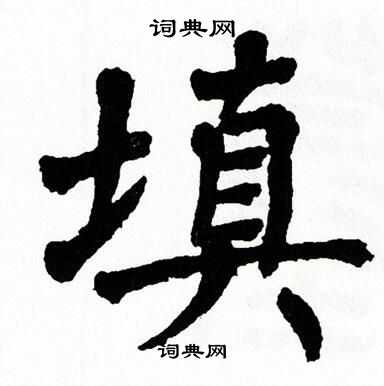 词典网
填
词典网